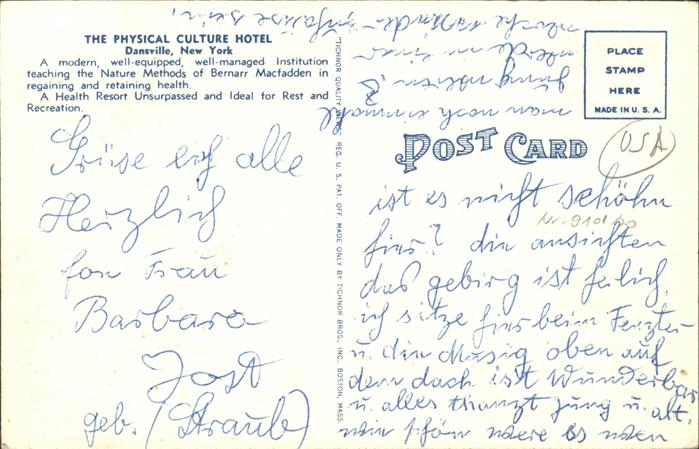 THE PHYSICAL CULTURE HOTEL
Dansville, New York
A modern, well-equipped, well-managed Institution
teaching the Nature Methods of Bernarr Macfadden in
regaining and retaining health.
A Health Resort Unsurpassed and Ideal for Rest and
Recreation.
Grüse euch alle
Herzlich
fon Frau
Barbara
Jost
geb. (Straub)
"TICHNOR QUALITY VIEWS," REG. U. S. PAT. OFF. MADE ONLY BY TICHNOR BROS., INC., BOSTON, MASS.
PLACE
STAMP
HERE
MADE IN U. S. A.
POST CARD
USA
ist es nicht schöhn
hier? die ansichten
das gebirg ist
ich sitze hier beim Fenzter
u. die Musig oben auf
dem dach ist Wunderbar
u. alles thanzt jung u. alt.
wie schön were es wen
man noch einmahl
jung